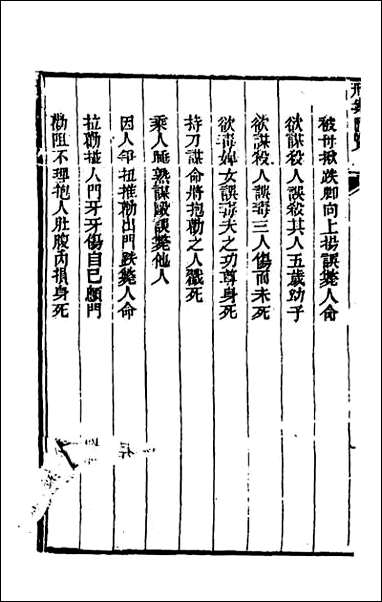 刑案匯覽
被母揪跌腳向上揚誤斃人命
欲謀殺人誤殺其人五歲幼子
欲謀殺人誤毒三人傷而未死
欲毒婢女誤毒夫之功尊身死
持刀謀命將抱勸之人戳死
乘人睡熟謀毆誤斃他人
因人爭扭推勸出門跌斃人命
拉勸撞人門牙牙傷自己顖門
勸阻不理抱人肚腹內損身死